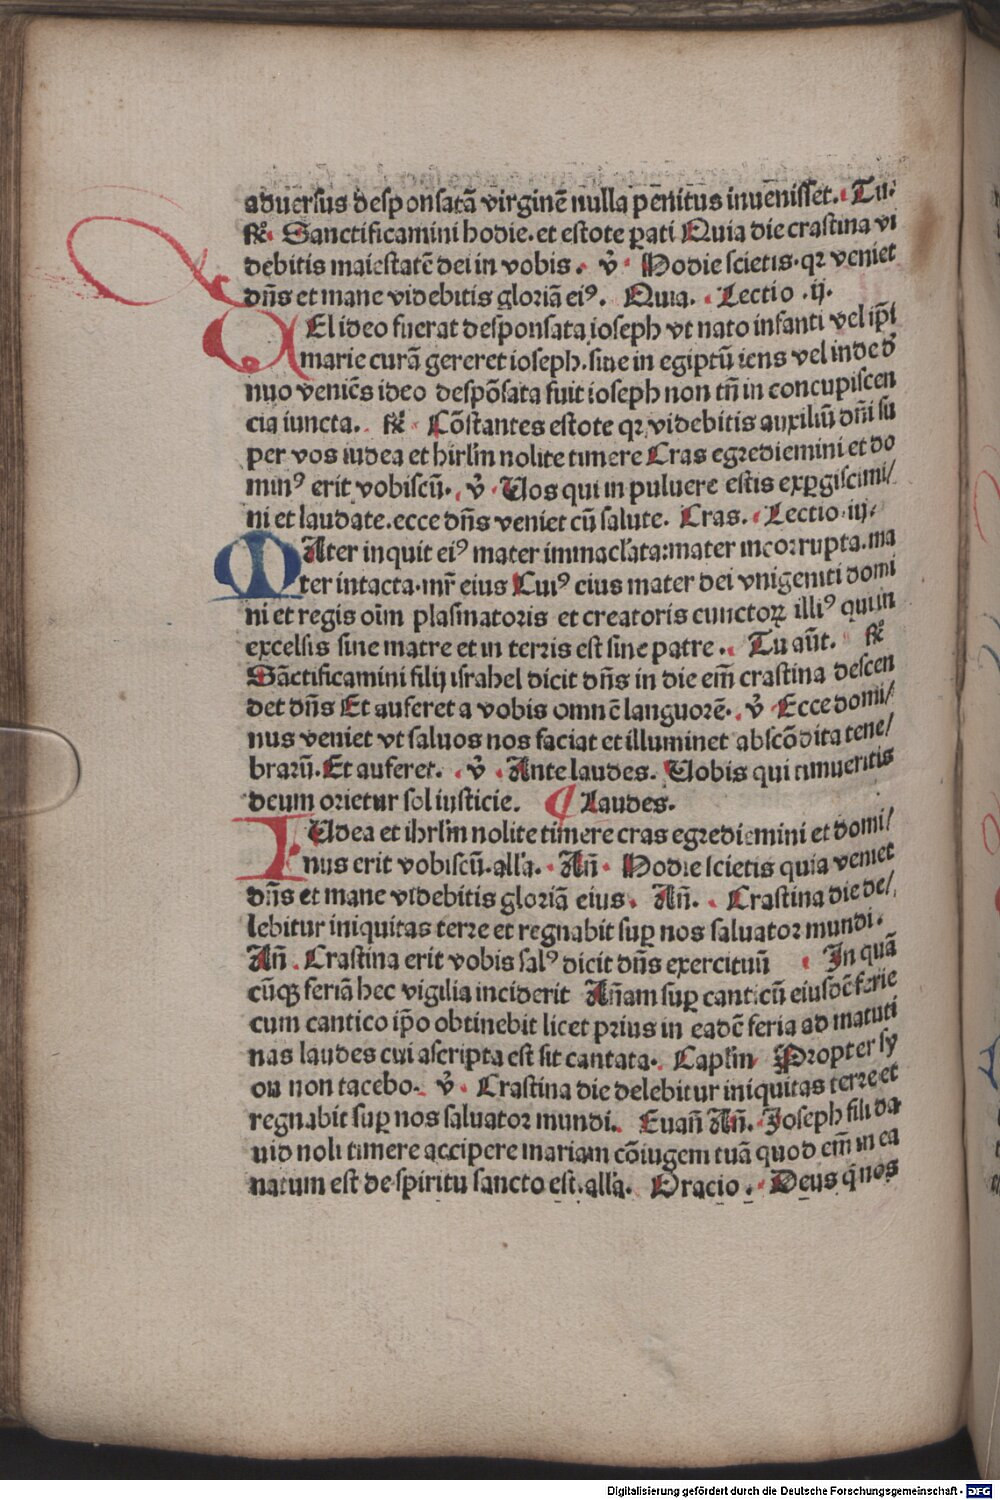 aduersus desponsatā virginē nulla pēnitus inuenisset. Tu.
℟. Sanctificamini hodie. et estote ꝑati Quia die crastina vi
debitis maiestatē dei in vobis. ℣. Hodie scietis. qꝛ veniet
dn̄s et mane videbitis gloriā eiꝰ. Quia. Lectio .ij.
VEl ideo fuerat desponsata ioseph vt nato infanti vel ip̄i
marie curā gereret ioseph. siue in egiptū iens vel inde d̕
nuo veniēs ideo despōsata fuit ioseph non tn̄ in concupiscen
cia iuncta. ℟. Cōstantes estote qꝛ videbitis auxiliū dn̄i su
per vos iudea et hirl̄m nolite timere Cras egrediemini et do
minꝰ erit vobiscū. ℣. Uos qui in puluere estis exꝑgiscimi/
ni et laudate. ecce dn̄s veniet cū salute. Cras. Lectio .iij.
MAter inquit eiꝰ mater immacl̓ata: mater incorrupta. ma
ter intacta. mr̄ eius Cuiꝰ eius mater dei vnigeniti domi
ni et regis oīm plasmatoris et creatoris cunctoꝝ illiꝰ qui in
excelsis sine matre et in terris est sine patre. Tu aūt. ℟
Sāctificamini filij israhel dicit dn̄s in die em̄ crastina descen
det dn̄s Et auferet a vobis omnē languorē. ℣. Ecce domi/
nus veniet vt saluos nos faciat et illuminet abscōdita tene/
brarū. Et auferet. ℣. Ante laudes. Uobis qui timueritis
deum orietur sol iusticie. ¶ Laudes.
IUdea et ihrl̄m nolite timere cras egrediemini et domi/
nus erit vobiscū. all̓a. An̄. Hodie scietis quia veniet
dn̄s et mane videbitis gloriā eius. An̄. Crastina die de/
lebitur iniquitas terre et regnabit suꝑ nos saluator mundi.
An̄. Crastina erit vobis salꝰ dicit dn̄s exercituū In quā
cūqꝫ feriā hec vigilia inciderit An̄am suꝑ canticū eiusdē ferie
cum cantico ip̄o obtinebit licet prius in eadē feria ad matuti
nas laudes cui ascripta est sit cantata. Capl̄m Propter sy
on non tacebo. ℣. Crastina die delebitur iniquitas terre et
regnabit suꝑ nos saluator mundi. Euan̄ An̄. Joseph fili da
uid noli timere accipere mariam cōiugem tuā quod em̄ in ea
natum est de spiritu sancto est. all̓a. Oracio. Deus q̄ nos
Digitalisierung gefördert durch die Deutsche Forschungsgemeinschaft - DFG